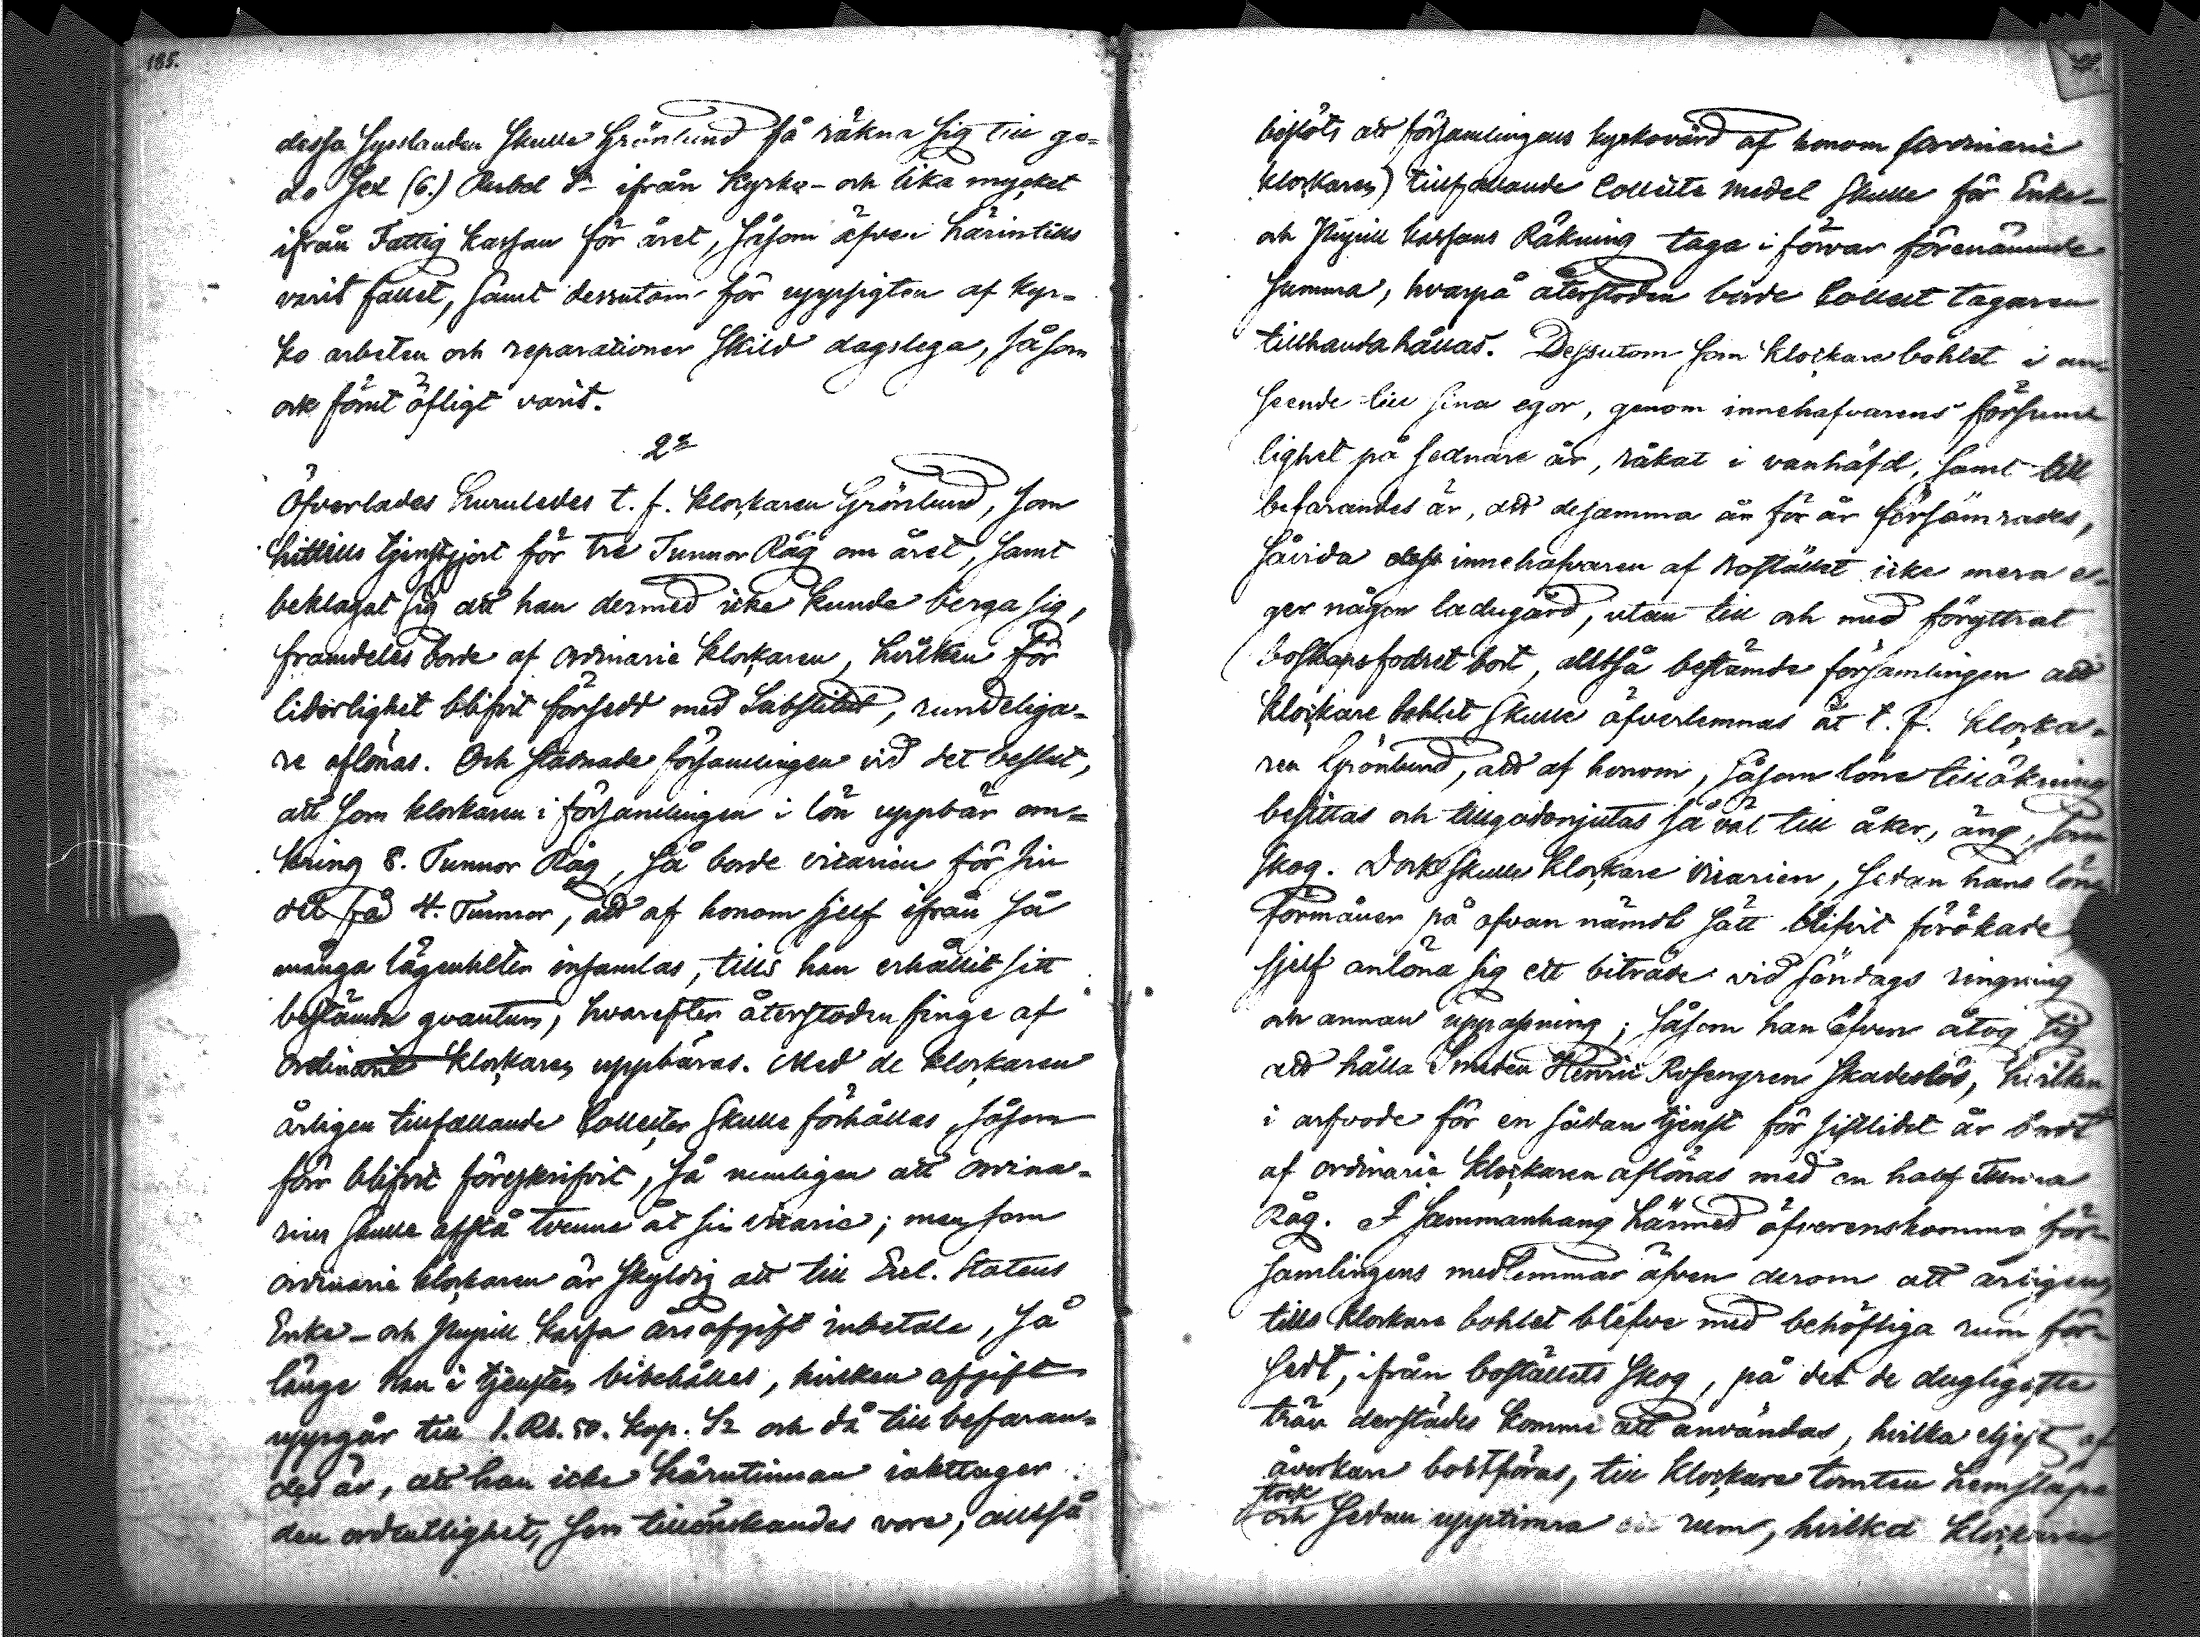 185.
dessa sysslanden skulle Grönlund få räkna sig till go-
do Sex (6.) Rubel S- ifrån Kyrko- och lika mycket
ifrån Fattig kassan för året, såsom äfven härintills
varit fallet, samt dessutom för uppsigten af kyr-
ko arbeten och reparationer skild dagslega, såsom
ock förut öfligt varit.
2§
Öfverlades huruledes t. f. klockaren Grönlund, som
hittills tjenstgjort för tre Tunnor Råg om året, samt
beklagat sig att han dermed icke kunde berga sig,
framdeles borde af ordinarie klockaren, hvilken för
liderlighet blifvit försedd med Substitut, rundeliga-
re aflönas. Och stadnade församlingen vid det beslut,
att som klockaren i församlingen i lön uppbär om-
kring 8. Tunnor Råg, så borde vicarien för sin
del få 4. Tunnor, att af honom sjelf ifrån så
många lägenheter insamlas, tills han erhållit sitt
bestämda qvantum, hvarefter återstoden finge af
ordinarie klockaren uppbäras. Med de klockaren
årligen tillfallande Collecter skulle förhållas, såsom
förr blifvit föreskrifvit, så nemligen att ordina-
rius skulle afstå tvenne åt sin vicarie; men som
ordinarie klockaren är skyldig att till Eccl. Statens
Enke- och Pupill kassa årsafgift inbetala, så
länge han i tjensten bibehålles, hvilken afgift
uppgår till 1. Rb. 50. kop. Sr och då till befaran-
des är, att han icke härutinnan iakttager
den ordentlighet, som tillönskandes vore, alltså
beslöts att församlingens kyrkovärd af honom (ordinarie
klockaren) tillfallande Collecte medel skulle för Enke-
och Pupill kassans Räkning taga i förvar förenämnde
summa, hvarpå återstoden borde Collect tagaren
tillhandahållas. Dessutom som klockare bohlet i an-
seende till sina egor, genom innehafvarens försum-
lighet på sednare år, råkat i vanhäfd, samt till
befarandes är, att desamma år för år försämrades,
såvida dess innehafvaren af bostället icke mera e-
ger någon ladugård, utan till och med föryttrat
boskapsfodret bort, alltså bestämde församlingen att
klockare bohlet skulle öfverlemnas åt t. f. klocka-
ren Grönlund, att af honom, såsom löne tillökning
besittas och tillgodonjutas så väl till åker, äng, som
skog. Dock skulle klockare vicarien, sedan hans löne
förmåner på ofvan nämdt sätt blifvit förökade
sjelf anlöna sig ett biträde vid söndags ringning
och annan uppassning; såsom han äfven åtog sig
att hålla Smeden Henric Rosengren skadeslös, hvilken
i arfvode för en sådan tjenst för sistlidet år bordt
af ordinarie klockaren aflönas med en half Tunna
Råg. I sammanhang härmed öfverenskommo för-
samlingens medlemmar äfven derom att årligen,
tills klockare bohlet blefve med behöfliga rum för-
sedt, ifrån boställets skog, på det de dugligaste
trän derstädes komme att användas, hvilka eljest af
åverkare bortföras, till klockare tomten hemsläpa
stock
och sedan upptimra ett rum, hvilket klockaren